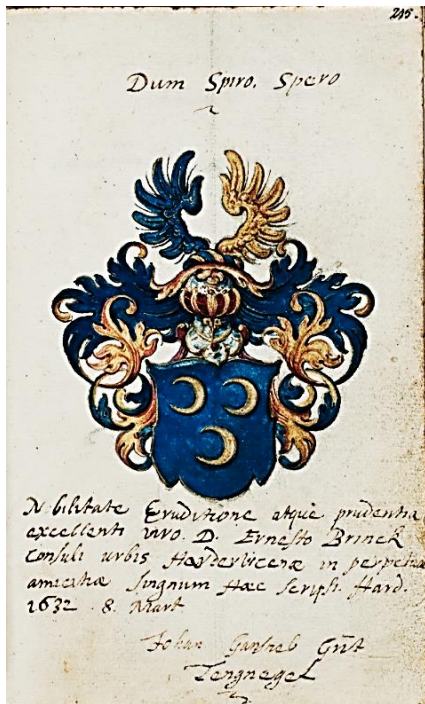 215.
Dum Spiro. Spero
Nobilitate Eruditione atque prudentia
excellenti viro. D. Ernesto Brinck
Consuli urbis Harderlicenæ in perpetuæ
amicitiæ singnum Hæc scripsi. Hard.
1632 . 8. Mart
Johan
Tengnegel